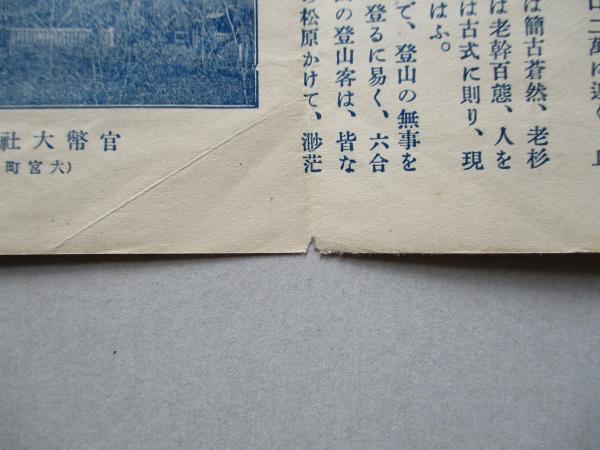 口二萬に近く、
は簡古蒼然、老杉
は老幹百態、人を
は古式に則り、現
はふ。
て、登山の無事を
登るに易く、六合
の登山客は、皆な
松原かけて、渺茫
官幣大社
(大宮町